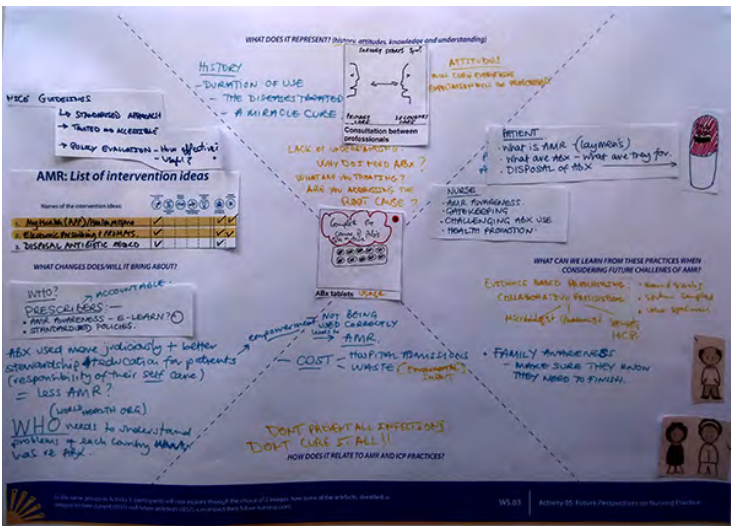 WHAT DOES IT REPRESENT? (history, attitudes, knowledge and understanding)
HISTORY
- DURATION OF USE
- THE DISEASES TREATED
- A MIRACLE CURE
PRIMARY CARE
SECONDARY CARE
Consultation between professionals
ATTITUDES!
WILL CURE EVERYTHING
NICE GUIDELINES
STANDARDISED APPROACH
→ TRUSTED AND ACCESSIBLE
→ POLICY EVALUATION - How effective?
- Useful?
AMR: List of intervention ideas
Names of the intervention ideas
2. Electronic Prescribing
3. DISPOSAL ANTIBIOTIC
LACK OF UNDERSTANDING
WHY DO I NEED ABX?
WHAT AM I TREATING?
ARE YOU ADDRESSING THE
ROOT CAUSE?
PATIENT
• What is AMR - (laymen's)
• What are ABX - What are they for.
• DISPOSAL OF ABX
NURSE
- AMR AWARENESS
- GATEKEEPING
- CHALLENGING ABX USE
- HEALTH PROMOTION
ABx tablets USAGE
WHAT CHANGES DOES/WILL IT BRING ABOUT?
WHO?
ACCOUNTABLE.
PRESCRIBERS:
• AMR AWARENESS - E-LEARN?
• STANDARDISED POLICIES.
ABX used more judiciously + better
stewardship + education for patients
(responsibility of their self care)
= LESS AMR?
(WORLD HEALTH ORG)
WHO needs to understand
problems of each country
has re ABX.
empowerment
NOT BEING
USED CORRECTLY
AMR.
- COST
- HOSPITAL ADMISSIONS
- WASTE
DON'T PREVENT ALL INFECTIONS
DON'T CURE IT ALL!!
HOW DOES IT RELATE TO AMR AND ICP PRACTICES?
WHAT CAN WE LEARN FROM THESE PRACTICES WHEN
CONSIDERING FUTURE CHALLENES OF AMR?
EVIDENCE BASED PRESCRIBING
COLLABORATIVE PRESCRIBING
Microbiologist Pharmacist
• FAMILY AWARENESS
- MAKE SURE THEY KNOW
THEY NEED TO FINISH.
WS.03
Activity 05: Future Perspectives on Nursing Practice